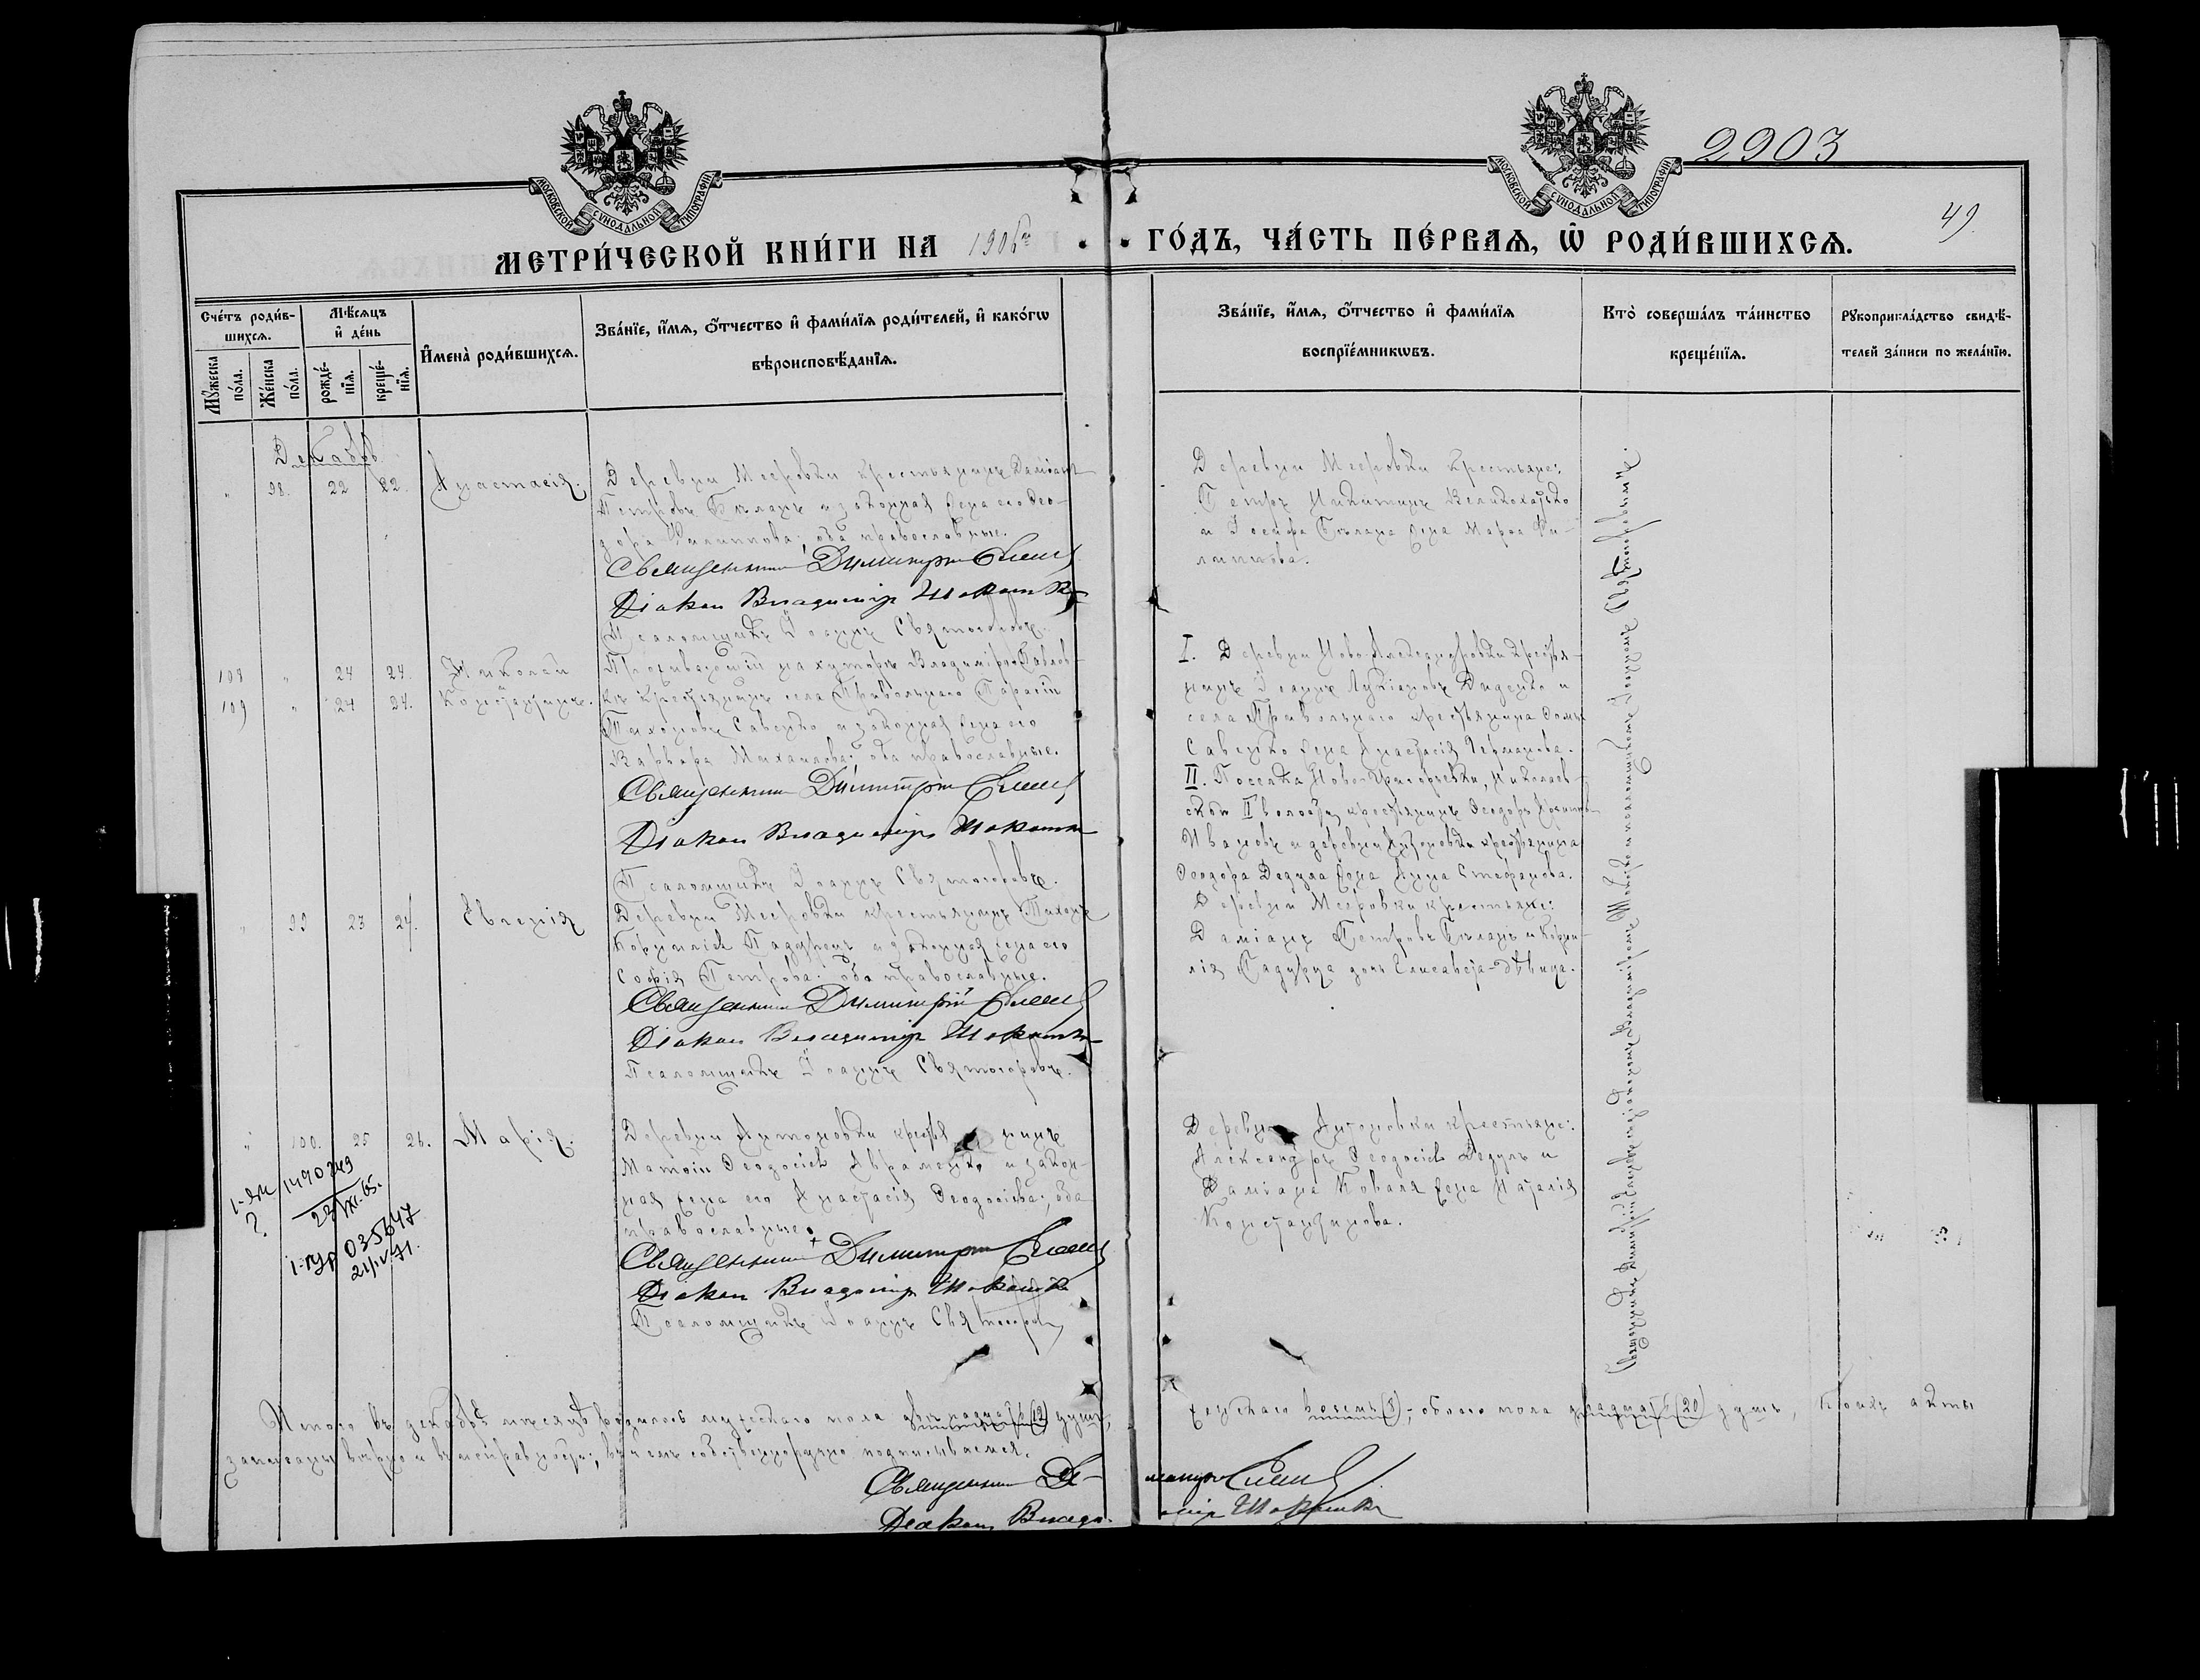 МОСКОВСКОЙ СУНОДАЛЬНОЙ ТИПОГРАФИИ
МОСКОВСКОЙ СУНОДАЛЬНОЙ ТИПОГРАФИИ
2903
49
МЕТРИ́ЧЕСКОЙ КНИ́ГИ НА 1906
ГО́ДЪ, ЧА́СТЬ ПЕ́РВАѦ, Ѡ РОДИ́ВШИХСѦ.
Сче́тъ роди́в-
шихсѧ.
Мꙋ́жеска
по́ла.
Же́нска
по́ла.
Мѣ́сѧцъ
и҆ де́нь
рожде́-
нїѧ.
креще́-
нїѧ.
И҆мена̀ роди́вшихсѧ.
Зва́нїе, и҆́мѧ, ѻ҆́тчество и҆ фами́лїѧ роди́телей, и҆ како́гѡ
вѣроисповѣ́данїѧ.
Зва́нїе, и҆́мѧ, ѻ҆́тчество и҆ фами́лїѧ
воспрїе́мникѡвъ.
Кто̀ соверша́лъ та́инство
креще́нїѧ.
Рꙋкоприкла́дство свидѣ́-
телей за́писи по жела́нїю.
Декабрь
" 98. 22 22. Анастасія.
Деревни Мееровки крестьянинъ Даміанъ
Петровъ Бѣланъ и законная жена его Ѳео-
дора Филиппова; оба православные.
Священникъ Димитрій
Діаконъ Владиміръ
Псаломщикъ Іоаннъ Святогоровъ.
Деревни Мееровки крестьяне:
Петръ Никитинъ
и Іосифа Бѣлана жена Марѳа Фи-
липпова.
108 " 24 24. Николай
109 " 24 24. Константинъ.
Проживающій на хуторѣ Владиміро-Павлов-
кѣ крестьянинъ села Привольнаго Тарасій
Тихоновъ Савенко и законная жена его
Варвара Михаилова; оба православные.
Священникъ Димитрій
Діаконъ Владиміръ
Псаломщикъ Іоаннъ Святогоровъ.
I. Деревни Ново-Александровки крестья-
нинъ Іоаннъ Лукіановъ Диденко и
села Привольнаго крестьянина Ѳомы
Савенко жена Анастасія Германова.
II. Поселка Ново-Григорьевки, Николаев-
ской II волости, крестьянинъ Ѳеодоръ
Ивановъ и деревни Антоновки крестьянина
Ѳеодора Дедула жена Анна Стефанова.
" 99 23 24. Евгенія
Деревни Мееровки крестьянинъ Тихонъ
Корниліевъ и законная жена его
Софія Петрова; оба православные.
Священникъ Димитрій
Діаконъ Владиміръ
Псаломщикъ Іоаннъ Святогоровъ.
Деревни Мееровки крестьяне:
Даміанъ Петровъ Бѣланъ и Корни-
лія дочь Елисавета-дѣвица.
" 100. 25 26. Марія.
Деревни Антоновки крестьянинъ
Матѳій Ѳеодосіевъ Авраменко и закон-
ная жена его Анастасія Ѳеодосіева; оба
православные.
Священникъ Димитрій
Діаконъ Владиміръ
Псаломщикъ Іоаннъ Святогоровъ
Деревни Антоновки крестьяне:
Александръ Ѳеодосіевъ Дедулъ и
Даміана Коваля жена Наталія
Константинова.
1490249
23/XI-65.
035647
21/IV-71.
Итого въ декабрѣ мѣсяцѣ родилось мужескаго пола двѣнадцать (12) душъ, женскаго восемь (8); обоего пола двадцать (20) душъ, коихъ акты
записаны вѣрно и въ исправности; въ чемъ собственноручно подписываемся.
Священникъ Димитрій
Діаконъ Владиміръ